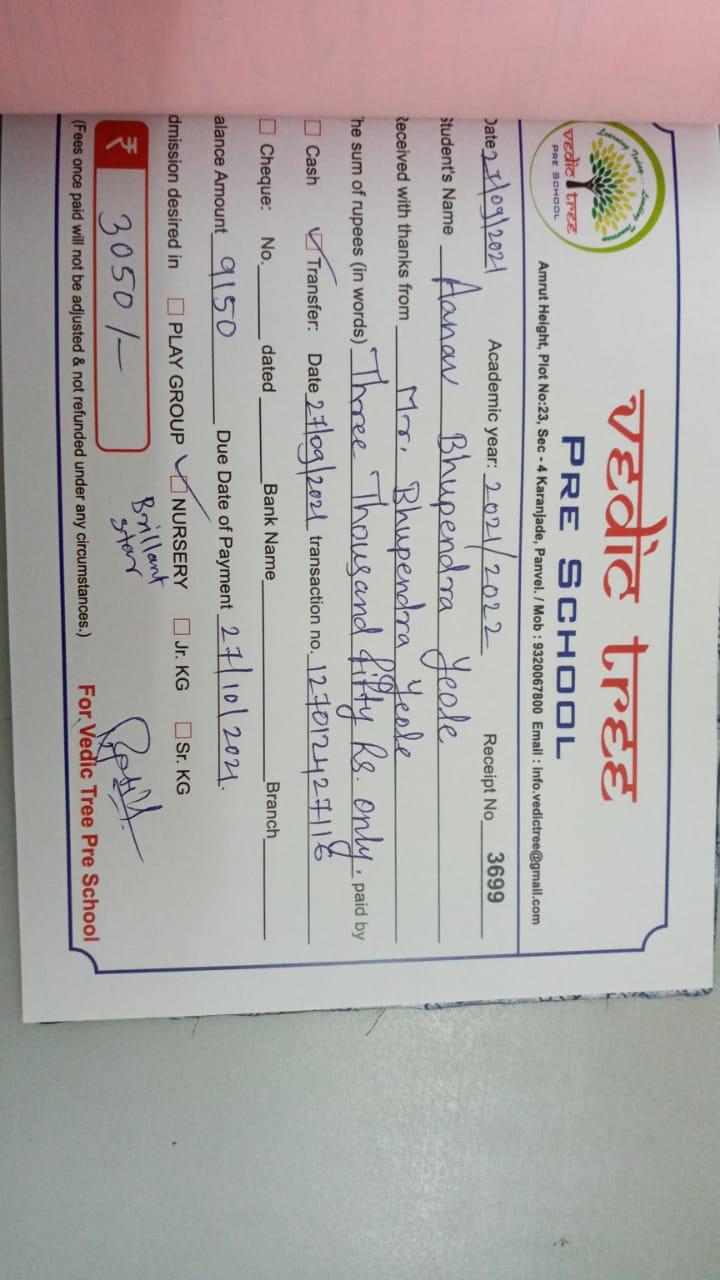 vedic tree
PRE SCHOOL
vedic tree
PRE SCHOOL
Amrut Height, Plot No:23, Sec - 4 Karanjade, Panvel. / Mob : 9320067800 Email : info.vedictree@gmail.com
Date 27/09/2021 Academic year: 2021/2022 Receipt No 3699
Student's Name Aanav Bhupendra Yeole
Received with thanks from Mr. Bhupendra Yeole
The sum of rupees (in words) Three Thousand fifty Rs. only. paid by
Cash Transfer: Date 27/09/2021 transaction no. 127012427118
Cheque: No. dated Bank Name Branch
alance Amount 9150 Due Date of Payment 27/10/2021.
dmission desired in PLAY GROUP NURSERY Jr. KG Sr. KG
₹ 3050/- Brillant
star
For Vedic Tree Pre School
(Fees once paid will not be adjusted & not refunded under any circumstances.)